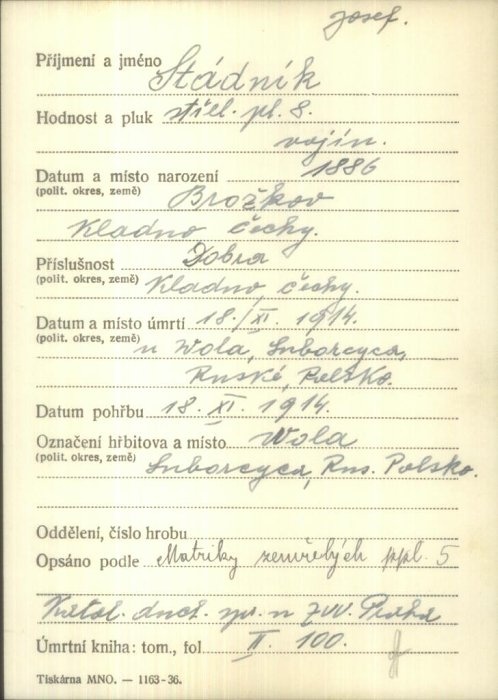 Josef.
Příjmení a jméno Stádník
Hodnost a pluk střel. pl. 8.
vojín.
Datum a místo narození 1886
(polit. okres, země) Brožkov
Kladno Čechy.
Příslušnost Dobra
(polit. okres, země) Kladno, Čechy.
Datum a místo úmrtí 18./XI. 1914.
(polit. okres, země) u Wola, Luborcyca,
Ruské, Polsko.
Datum pohřbu 18. XI. 1914.
Označení hřbitova a místo Wola
(polit. okres, země) Luborcyca, Rus. Polsko.
Oddělení, číslo hrobu
Opsáno podle Matriky zemřelých ppl. 5
Katol. duch. spr. u ZVV. Praha
Úmrtní kniha: tom., fol II. 100.
Tiskárna MNO. — 1163-36.